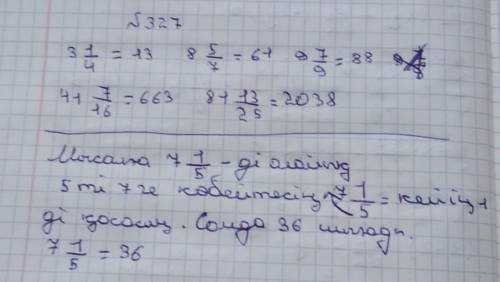 №327
3 1/4 = 13 8 5/7 = 61 9 7/9 = 88
41 7/16 = 663 81 13/25 = 2038
Мысалға 7 1/5 - ді алайық
5 ті 7 ге көбейтесің 7 1/5 = кейін 1
ді қосасың. Сонда 36 шығады.
7 1/5 = 36